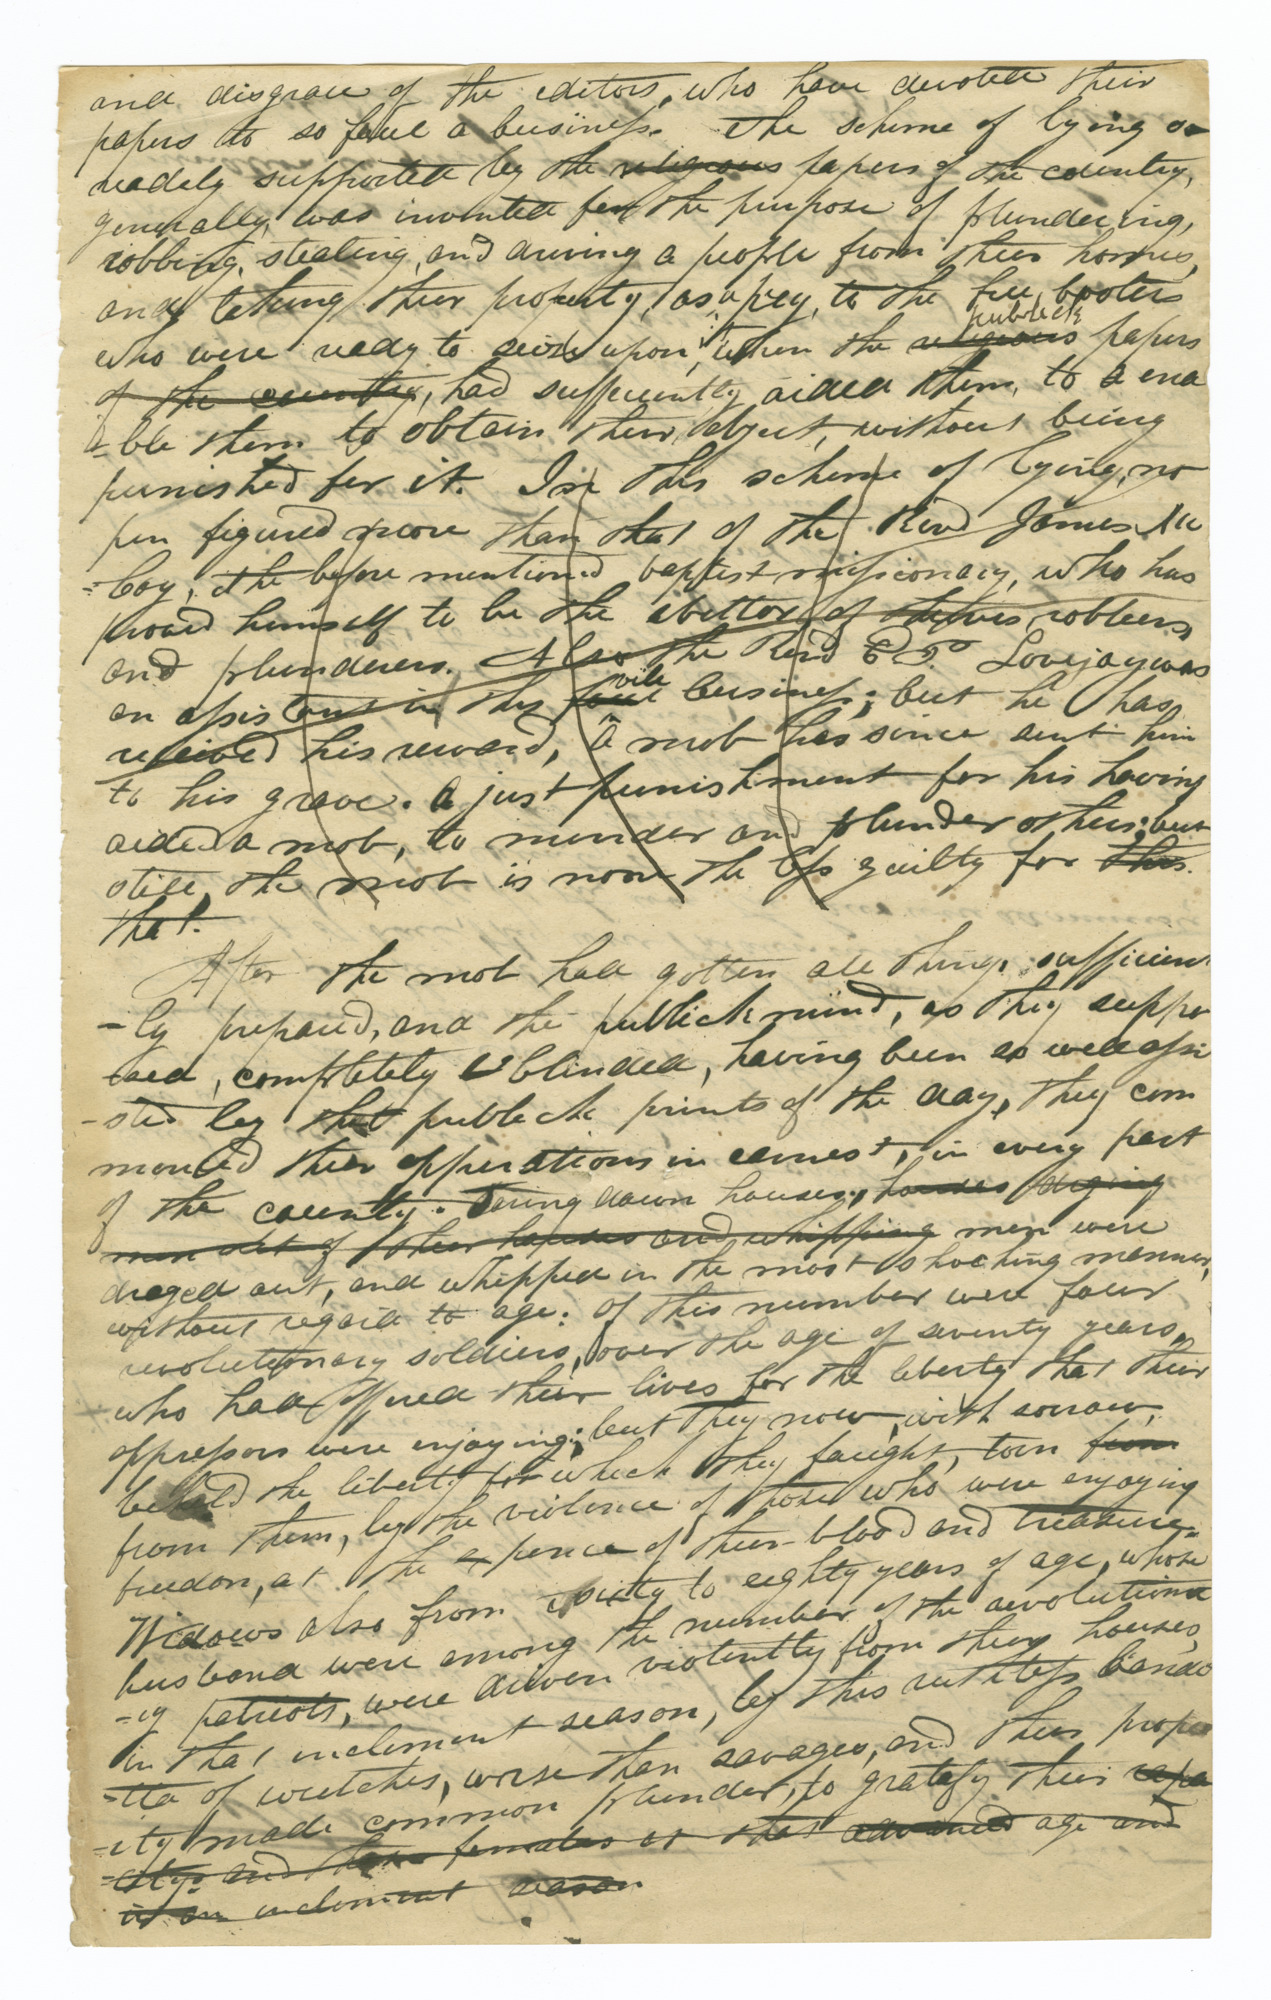 and disgrace of the editors, who have devoted their
papers to so foul a business. The scheme of lying so
readily supported by the religious papers of the country,
generally, was invented for the purpose of plundering,
robbing, stealing, and driving a people from their homes,
and taking their property, as a prey, to the free booters
who were ready to seize upon it, when the religious publick papers
of the country, had sufficiently aided them, to a ena
=ble them to obtain their object, without being
punished for it. In this scheme of lying, no
pen figured more than that of the Revd James Mc
=Coy, the before mentioned baptist missionary, who has
proved himself to be the abettor of theives robbers,
and plunderers. Also the Revd E P Lovejoy was
an assistant in this foul vile business; but he has
received his reward, A mob has since sent him
to his grave. a just punishment for his having
aided a mob, to murder and plunder others; but
still, the mob is none the less guilty for this.
that.
After the mob had gotten all things sufficient
-ly prepared, and the publick mind, as they suppo
-sed, completely blinded, having been so well assi
-sted by the publick prints of the day, they com
menced their opperations in earnest, in every part
of the county. Taring down houses, houses draging
men out of their houses and whipping men were
draged out, and whipped in the most shocking manner,
without regard to age: of this number were four
revolutionary soldiers, over the age of seventy years,
who had offered their lives for the liberty that their
oppressors were enjoying; but they now, with sorrow,
behold the liberty for which they faught, torn from
from them, by the violence of those who were enjoying
freedon, at the expence of their blood and treasure.
Widows also from sixty to eighty years of age, whose
husband were among the number of the revolutiona
=ry patriots, were driven violently from they houses,
in that inclement season, by this ruthless bandi
=tta of wretches, worse than savages, and their proper
=ity made common plunder, to gratify their rapa
=sity. and these females at that advanced age and
in an inclement season